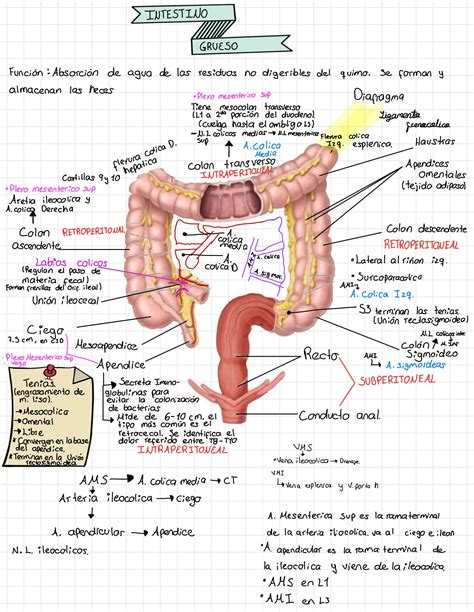 INTESTINO
GRUESO
Función: Absorción de agua de las residuas no digeribles del quimo. Se forman y
almacenan las heces
•Plexo mesenterico sup
Tiene mesocolon transverso
(L1 a 2da porción del duodeno)
(cuelga hasta el ombligo L3)
N.L colicos medias → N.L mesenterica
A. Colica
Media
Diafragma
Ligamento
frenocolico
Flexura colica
Izq. esplenica.
Haustras
Apendices
Omentales
(tejido adiposo)
flexura colica D.
hepatica
Costillas 9 y 10
Colon transverso
INTRAPERITONIAL
•Plexo mesenterico sup
Arteria ileocolica y
A. colica Derecha
Colon RETROPERITONAL
ascendente
Labios colicos
(Regulan el paso de
materia fecal)
Forman frenillos del Ori. ileal
Unión ileocecal
A.
colica
media
A.
colica D
A. colica
A. sigmoi.
Colon descendente
RETROPERITONEAL
•Lateral al riñon izq.
•Surcoparacolico
AMI
A. Colica Izq.
S3 terminan las tenias
(Unión rectosigmoidea)
N.L colicos inf
Colon
Sigmoideo
AMI
A. sigmoideas
Ciego
7.5 cm, en CID
•Plexo Mesenterico sup
Vago
Mesoapendice
Apendice
Recto
SUBPERITONEAL
Conducto anal.
Tenias
(engrosamiento de
m. liso).
→Mesocolica
→Omental
→Libre
*Convergen en la base
del apéndice.
*Terminan en la Unión
rectosigmoidea
Secreta Inmuno-
globulinas para
evitar la colonización
de bacterias
Mide de 6-10 cm, el
tipo más común es el
retrocecal. Se identifica el
dolor referido entre T8-T10
INTRAPERITONEAL
AMS → A. colica media → CT
Arteria ileocolica → Ciego
A. apendicular → Apendice
N.L. ileocolicos.
VMS
•Vena ileocolica → Drenaje
VMI
Vena esplenica y V. porta h
A. Mesenterica sup es la rama terminal
de la arteria ileocolica va al ciego e ileon
•A apendicular es la rama terminal de
la ileocolica y viene de la ileocolica.
•AMS en L1
•AMI en L3